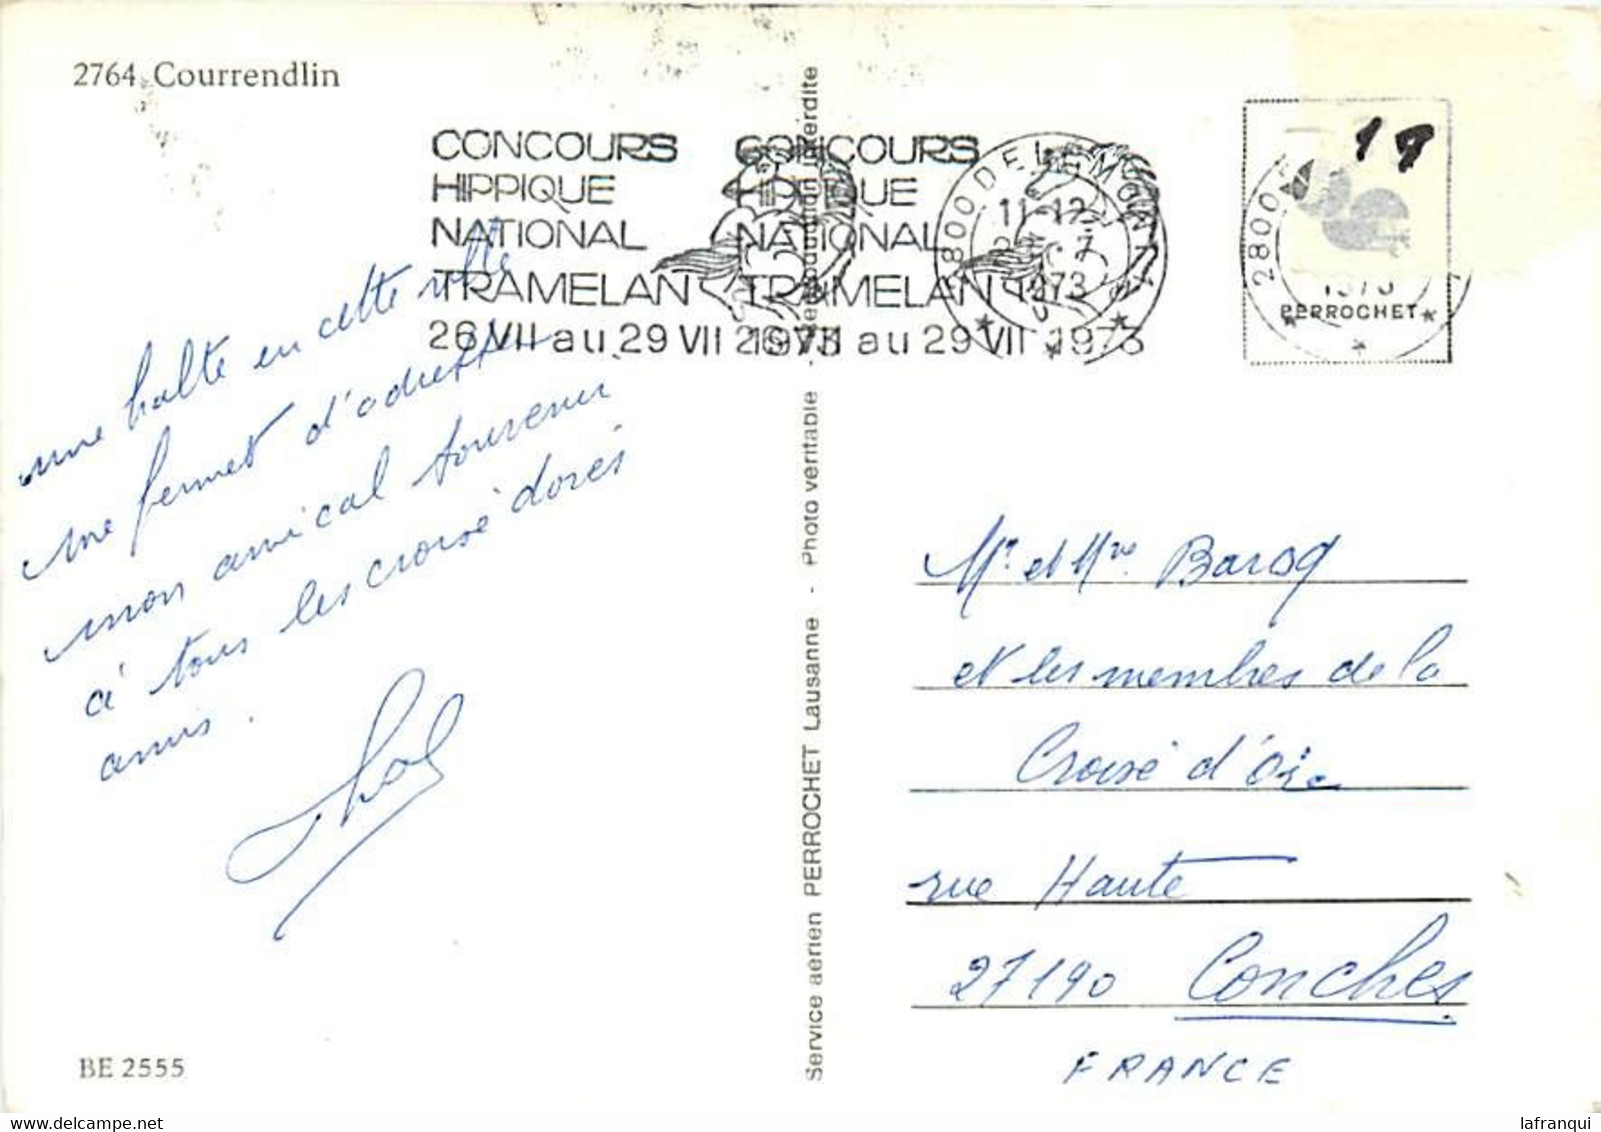 2764 Courrendlin
CONCOURS CONCOURS
HIPPIQUE HIPPIQUE
NATIONAL NATIONAL
TRAMELAN TRAMELAN
26 VII au 29 VII 1973 26 VII au 29 VII 1973
2800 DELEMONT
11-12
7
1973
2800
1973
PERROCHET
19
une halte en cette
me permet d'adresser
mon amical souvenir
à tous les croisé dorés
amis.
Service aérien PERROCHET Lausanne - Photo veritable - Reproduction interdite
Mr et Mme Barog
et les membres de la
Croisé d'Or
rue Haute
27190 Conches
FRANCE
BE 2555
lafranqui